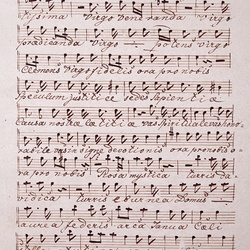 tissima Virgo Veneranda Virgo
prædicanda Virgo potens Virgo
Clemens Virgo fidelis ora pro nobis
speculum justitiæ sedes sapientia
Causa nostra lætitiæ vas spirituale vas hono
rabile vas insigne devotionis ora pro nobis o-
ra pro nobis Rosa mystica Turris Da
vidica Turris eburnea Domus
aurea fæderis arca Janua Cæli